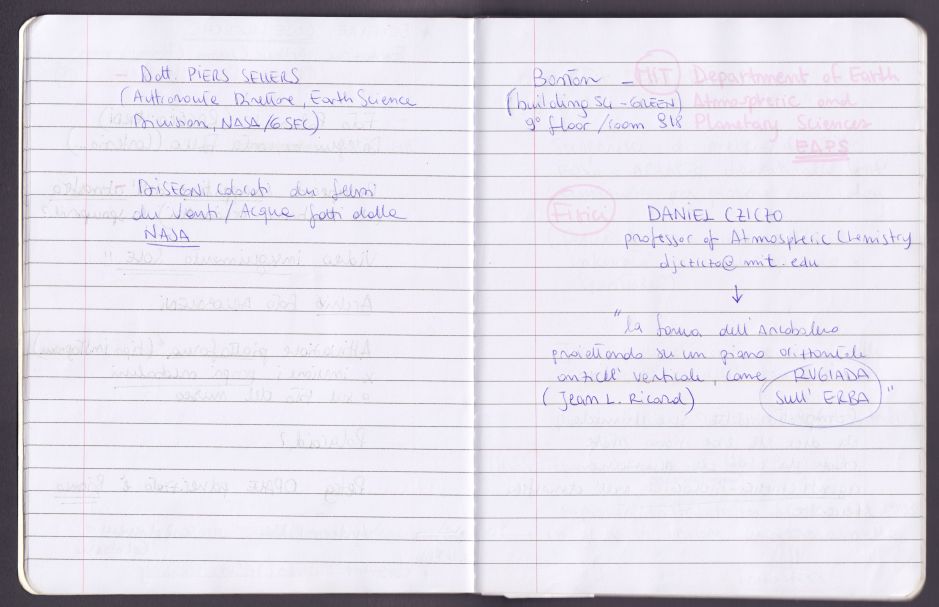 – Dott. PIERS SELLERS
(Astronauta Direttore, Earth Science
Division, NASA/GSFC)
DISEGNI colorati dei flussi
dei Venti / Acqua fatti dalla
NASA
Boston – MIT Department of Earth
(building 54 - GREEN) Atmospheric and
9° floor / room 918 Planetary Sciences
EAPS
Fisici
DANIEL CZICZO
professor of Atmospheric Chemistry
djcziczo@mit.edu
↓
"la forma dell'Arcobaleno
proiettando su un piano orizzontale
anziché verticale, come RUGIADA
(Jean L. Ricard) sull'ERBA"